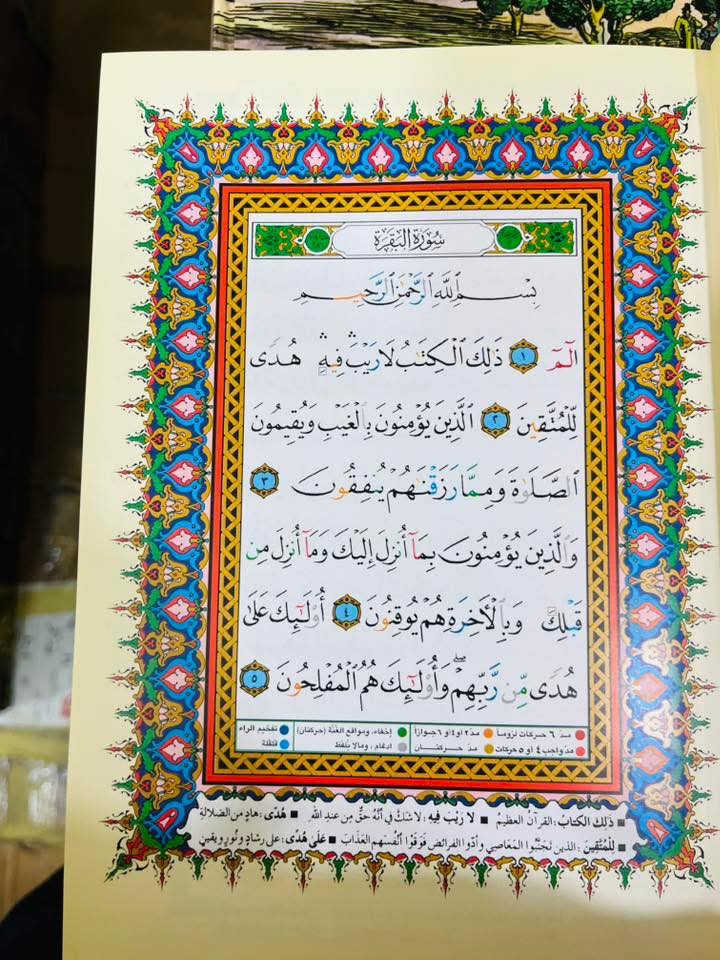 سُورَةُ البَقَرَةِ
بِسْمِ ٱللَّهِ ٱلرَّحْمَٰنِ ٱلرَّحِيمِ
الٓمٓ ١ ذَٰلِكَ ٱلْكِتَٰبُ لَا رَيْبَ ۛ فِيهِ ۛ هُدًى
لِّلْمُتَّقِينَ ٢ ٱلَّذِينَ يُؤْمِنُونَ بِٱلْغَيْبِ وَيُقِيمُونَ
ٱلصَّلَوٰةَ وَمِمَّا رَزَقْنَٰهُمْ يُنفِقُونَ ٣
وَٱلَّذِينَ يُؤْمِنُونَ بِمَآ أُنزِلَ إِلَيْكَ وَمَآ أُنزِلَ مِن
قَبْلِكَ وَبِٱلْءَاخِرَةِ هُمْ يُوقِنُونَ ٤ أُو۟لَٰٓئِكَ عَلَىٰ
هُدًى مِّن رَّبِّهِمْ ۖ وَأُو۟لَٰٓئِكَ هُمُ ٱلْمُفْلِحُونَ ٥
مدّ ٦ حركات لزوماً مدّ ٢ أو ٤ أو ٦ جوازاً إخفاء، ومواقع الغُنَّة (حركتان) تفخيم الراء
مدّ واجب ٤ أو ٥ حركات مدّ حركتان ادغام، ومالا يُلفَظ قلقلة
ذَلِكَ الكِتَابُ: القرآن العظيمُ لا رَيْبَ فِيهِ: لا شكّ في أنّهُ حقٌّ مِن عندِ اللهِ هُدًى: هادٍ من الضلالةِ
لِلْمُتَّقِينَ: الذين تجنَّبُوا المَعَاصِيَ وأدّوا الفرائضَ فَوَقَوْا أنْفُسَهم العَذَابَ عَلَى هُدًى: على رشادٍ ونُورٍ ويقينٍ